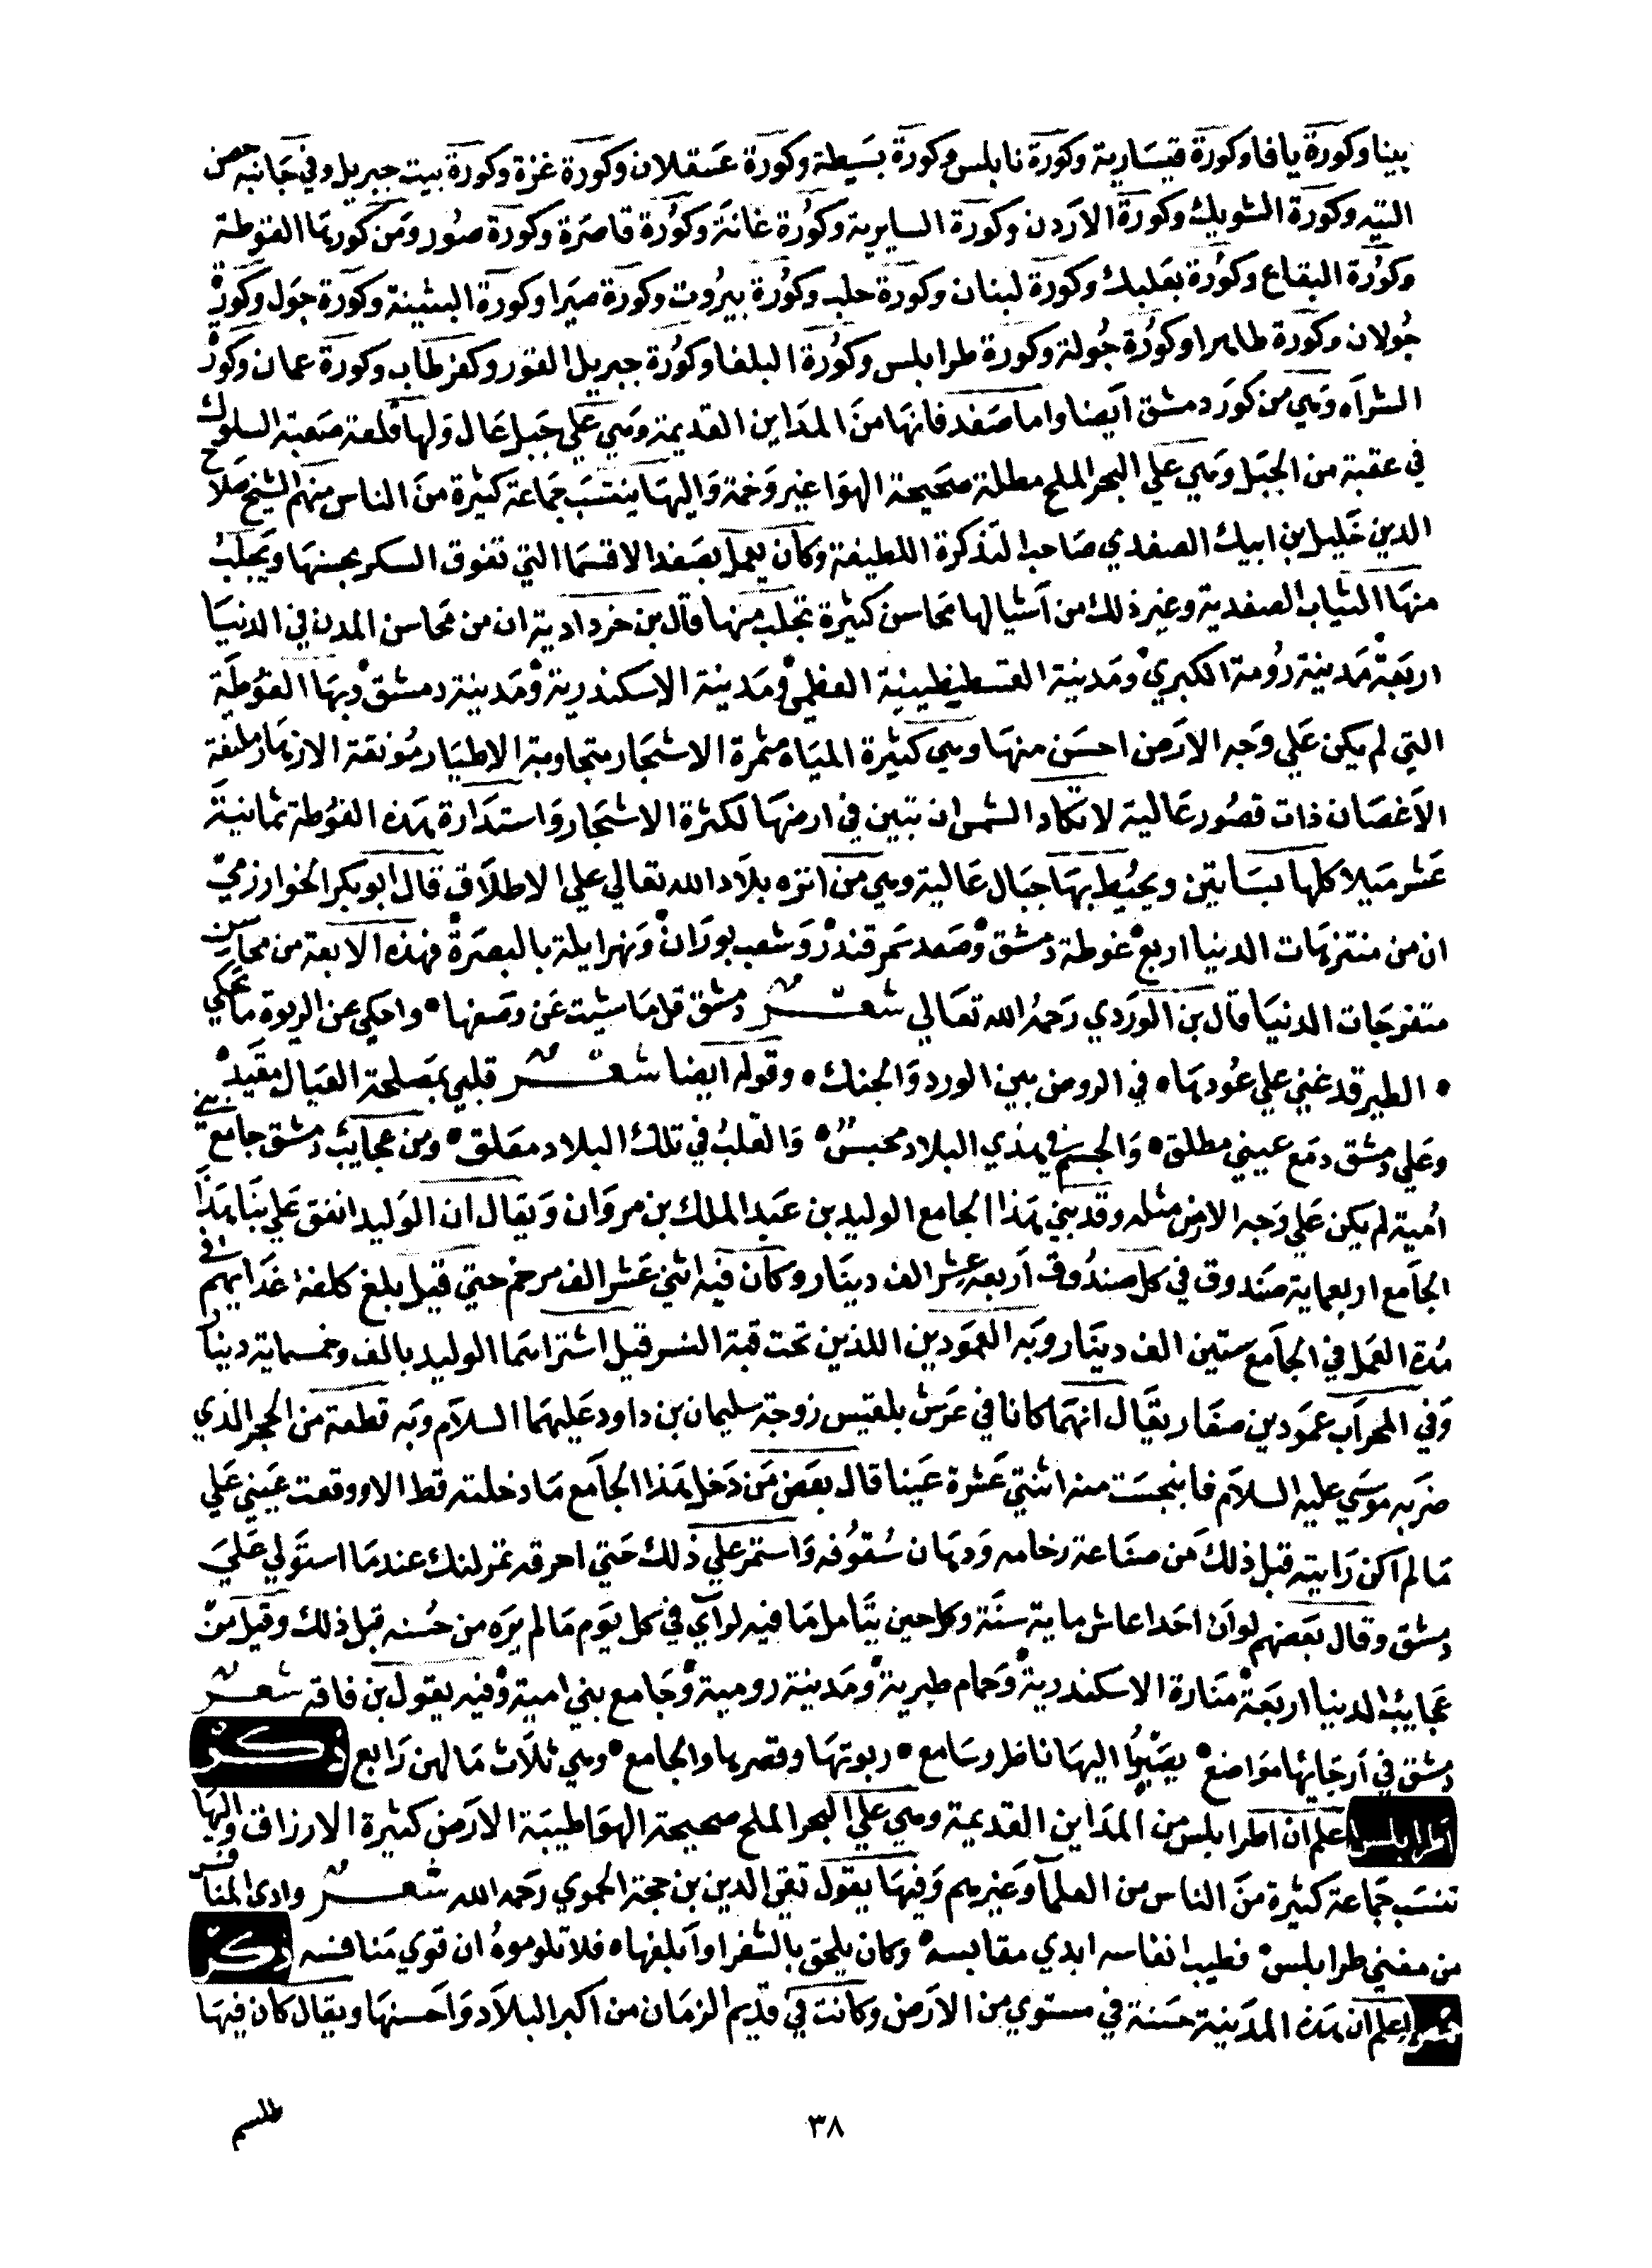 يبنا وكورة يافا وكورة قيسارية وكورة نابلس وكورة بسيطة وكورة عسقلان وكورة غزة وكورة بيت جبريل وفي جانبه حصن
التيه وكورة الشوبك وكورة الاردن وكورة السايرية وكورة غانة وكورة قاصرة وكورة صور ومن كور بما الغوطة
وكورة البقاع وكورة بعلبك وكورة لبنان وكورة حلب وكورة بيروت وكورة صيرا وكورة البشينة وكورة جول وكورة
جولان وكورة طاهرا وكورة جولة وكورة طرابلس وكورة البلقا وكورة جبريل الغور وكفر طاب وكورة عمان وكورة
الشراه وهي من كور دمشق ايضا واما صفد فانها من المداين القديمة وهي علي جبل عال ولها قلعة صعبة السلوك
في عقبة من الجبل وهي علي البحر الملح مطلة صحيحة الهوا غير وخمة واليها ينتسب جماعة كثيرة من الناس منهم الشيخ صلاح
الدين خليل بن ايبك الصفدي صاحب التذكرة اللطيفة وكان يعمل بصفد الاقسما التي تفوق السكر بحسنها ويجلب
منها الثياب الصفدية وغير ذلك من اشيا لها محاسن كثيرة تجلب منها قال بن خردادية ان من محاسن المدن في الدنيا
اربعة مدينة رومة الكبري ومدينة القسطيطينية العظمي ومدينة الاسكندرية ومدينة دمشق وبها الغوطة
التي لم يكن علي وجه الارض احسن منها وهي كثيرة المياه مثمرة الاشجار متجاوبة الاطيار مونقة الازهار ملتفة
الاغصان ذات قصور عالية لا تكاد الشمس ان تبين في ارضها لكثرة الاشجار واستدارة هذه الغوطة ثمانية
عشر ميلا كلها بساتين ويحيط بها جبال عالية وهي من انزه بلاد الله تعالي علي الاطلاق قال ابو بكر الخوارزمي
ان من منتزهات الدنيا اربع غوطة دمشق وصغد سمرقند وشعب بوران ونهر ايلة بالبصرة فهذه الابعة من محاسن
متفرجات الدنيا قال بن الوردي رحمه الله تعالي شعر دمشق قل ما شيت عن وصفها • واحكي عن الربوة ما تحكي
• الطير قد غني علي عودها • في الروض بين الورد والجنك • وقوله ايضا شعر قلبي بمصلحة العيال مقيد
وعلي دمشق دمع عيني مطلق • والجسم في هذي البلاد محبس • والقلب في تلك البلاد معلق • ومن عجايب دمشق جامع بني
امية لم يكن علي وجه الارض مثله وقد بني هذا الجامع الوليد بن عبد الملك بن مروان ويقال ان الوليد انفق علي بنا هذا
الجامع اربعماية صندوق في كل صندوق اربعة عشر الف دينار وكان فيه اثني عشر الف مرخم حتي قيل بلغ كلفة غدايهم في
مدة العمل في الجامع ستين الف دينار وبه العمودين اللذين تحت قبة النسر قيل اشتراهما الوليد بالف وخمسماية دينار
وفي المحراب عمودين صغار يقال انهما كانا في عرش بلقيس زوجة سليمان بن داود عليهما السلام وبه قطعة من الحجر الذي
ضربه موسي عليه السلام فانبجست منه اثنتي عشرة عينا قال بعض من دخل هذا الجامع ما دخلته قط الا ووقعت عيني علي
ما لم اكن رايته قبل ذلك من صناعة رخامه ودهان سقوفه واستمر علي ذلك حتي احرقه تمرلنك عندما استولي علي
دمشق وقال بعضهم لو ان احدا عاش ماية سنة وكل حين يتامل ما فيه لراي في كل يوم ما لم يره من حسنه قبل ذلك وقيل من
عجايب الدنيا اربعة منارة الاسكندرية وحمام طبرية ومدينة رومية وجامع بني امية وفيه يقول بن فاقه شعر
دمشق في ارجايها مواضع • يصبوا اليها ناظر وسامع • ربوتها وقصرها والجامع • وهي ثلاث ما لهن رابع ذكر
اطرابلس اعلم ان اطرابلس من المداين القديمة وهي علي البحر الملح صحيحة الهوا طيبة الارض كثيرة الارزاق واليها
تنسب جماعة كثيرة من الناس من العلما وغيرهم وفيها يقول تقي الدين بن حجة الحموي رحمه الله شعر وادي المنافس
من مغني طرابلس • فطيب انفاسه ابدي مقابسه • وكان يلحق بالشقرا وابلغها • فلا تلوموه ان قوي منافسه ذكر
تدمر اعلم ان هذه المدينة حسنة في مستوي من الارض وكانت في قديم الزمان من اكبر البلاد واحسنها ويقال كان فيها
طلسم
٣٨